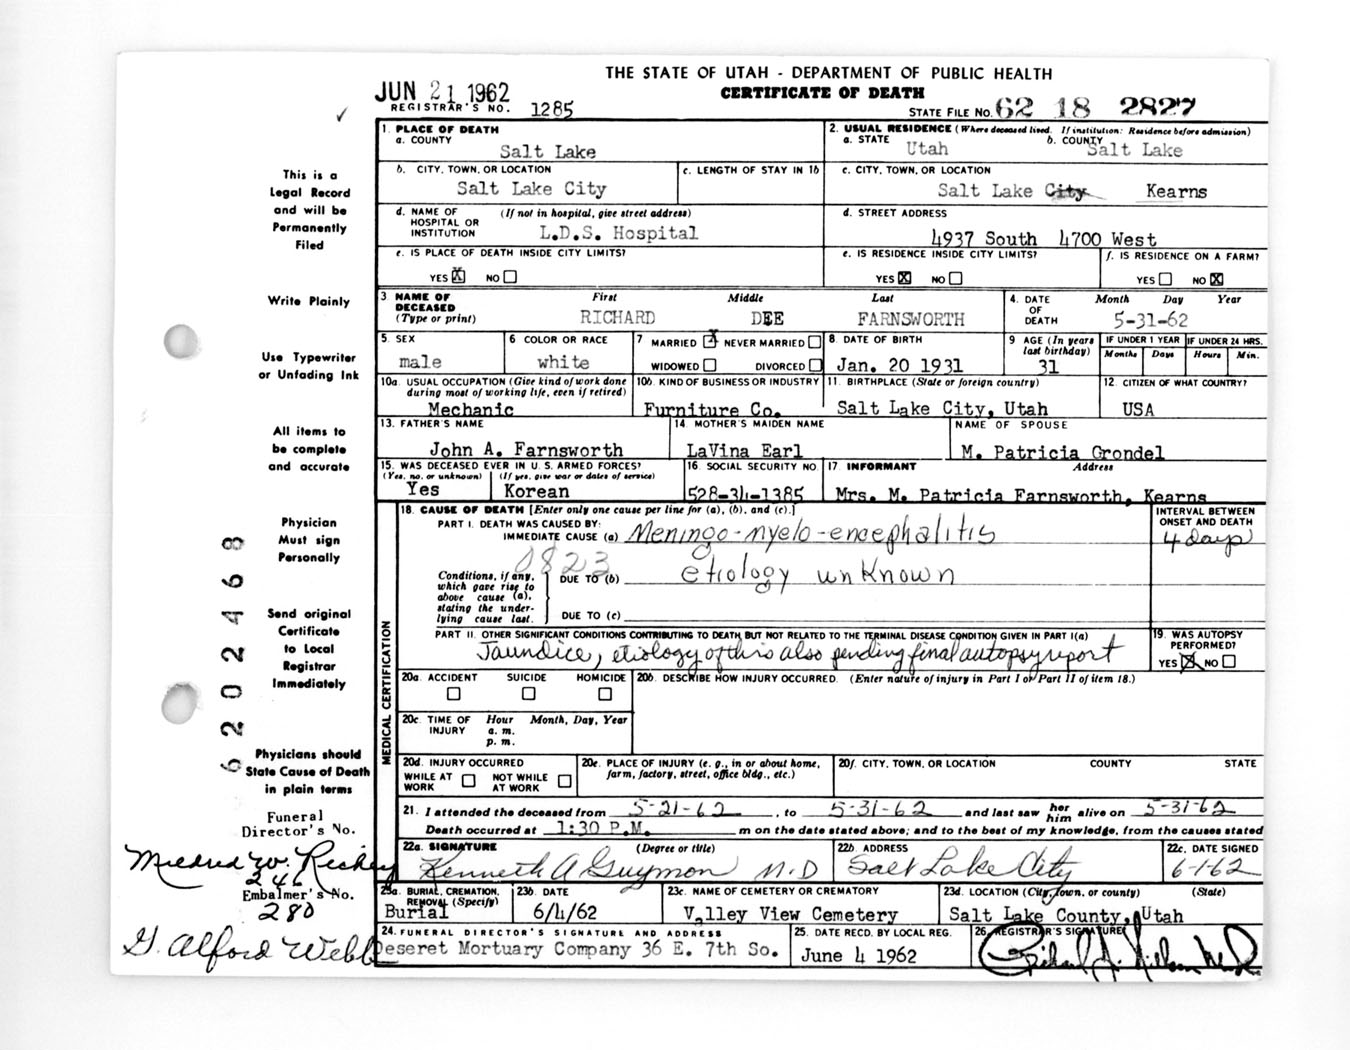 THE STATE OF UTAH - DEPARTMENT OF PUBLIC HEALTH
JUN 21 1962
CERTIFICATE OF DEATH
REGISTRAR'S NO. 1285
STATE FILE NO. 62 18 2827
1. PLACE OF DEATH
a. COUNTY
Salt Lake
2. USUAL RESIDENCE (Where deceased lived. If institution: Residence before admission)
a. STATE Utah b. COUNTY Salt Lake
b. CITY, TOWN, OR LOCATION
Salt Lake City
c. LENGTH OF STAY IN 1b
c. CITY, TOWN, OR LOCATION
Salt Lake City Kearns
d. NAME OF HOSPITAL OR INSTITUTION (If not in hospital, give street address)
L.D.S. Hospital
d. STREET ADDRESS
4937 South 4700 West
e. IS PLACE OF DEATH INSIDE CITY LIMITS?
YES X NO
e. IS RESIDENCE INSIDE CITY LIMITS?
YES X NO
f. IS RESIDENCE ON A FARM?
YES NO X
3. NAME OF DECEASED (Type or print)
First Middle Last
RICHARD DEE FARNSWORTH
4. DATE OF DEATH Month Day Year
5-31-62
5. SEX
male
6 COLOR OR RACE
white
7 MARRIED X NEVER MARRIED
WIDOWED DIVORCED
8. DATE OF BIRTH
Jan. 20 1931
9 AGE (In years last birthday)
31
IF UNDER 1 YEAR IF UNDER 24 HRS.
Months Days Hours Min.
10a. USUAL OCCUPATION (Give kind of work done during most of working life, even if retired)
Mechanic
10b. KIND OF BUSINESS OR INDUSTRY
Furniture Co.
11. BIRTHPLACE (State or foreign country)
Salt Lake City, Utah
12. CITIZEN OF WHAT COUNTRY?
USA
13. FATHER'S NAME
John A. Farnsworth
14. MOTHER'S MAIDEN NAME
LaVina Earl
NAME OF SPOUSE
M. Patricia Grondel
15. WAS DECEASED EVER IN U. S. ARMED FORCES?
(Yes, no, or unknown) (If yes, give war or dates of service)
Yes Korean
16. SOCIAL SECURITY NO.
528-34-1385
17. INFORMANT Address
Mrs. M. Patricia Farnsworth, Kearns
MEDICAL CERTIFICATION
18. CAUSE OF DEATH [Enter only one cause per line for (a), (b), and (c).]
PART I. DEATH WAS CAUSED BY:
IMMEDIATE CAUSE (a) Meningo-myelo-encephalitis
INTERVAL BETWEEN ONSET AND DEATH
4 days
0823
Conditions, if any, which gave rise to above cause (a), stating the underlying cause last.
DUE TO (b) etiology unknown
DUE TO (c)
PART II. OTHER SIGNIFICANT CONDITIONS CONTRIBUTING TO DEATH BUT NOT RELATED TO THE TERMINAL DISEASE CONDITION GIVEN IN PART I(a)
Jaundice, etiology of this also pending final autopsy report
19. WAS AUTOPSY PERFORMED?
YES X NO
20a. ACCIDENT SUICIDE HOMICIDE
20b. DESCRIBE HOW INJURY OCCURRED. (Enter nature of injury in Part I or Part II of item 18.)
20c. TIME OF INJURY Hour Month, Day, Year
a. m.
p. m.
20d. INJURY OCCURRED
WHILE AT WORK NOT WHILE AT WORK
20e. PLACE OF INJURY (e. g., in or about home, farm, factory, street, office bldg., etc.)
20f. CITY, TOWN, OR LOCATION COUNTY STATE
21. I attended the deceased from 5-21-62, to 5-31-62 and last saw her him alive on 5-31-62
Death occurred at 1:30 P.M. m on the date stated above; and to the best of my knowledge, from the causes stated
22a. SIGNATURE (Degree or title)
Kenneth A Guymon M.D
22b. ADDRESS
Salt Lake City
22c. DATE SIGNED
6-1-62
23a. BURIAL, CREMATION, REMOVAL (Specify)
Burial
23b. DATE
6/4/62
23c. NAME OF CEMETERY OR CREMATORY
Valley View Cemetery
23d. LOCATION (City, town, or county) (State)
Salt Lake County, Utah
24. FUNERAL DIRECTOR'S SIGNATURE AND ADDRESS
Deseret Mortuary Company 36 E. 7th So.
25. DATE RECD. BY LOCAL REG.
June 4 1962
26. REGISTRAR'S SIGNATURE
This is a
Legal Record
and will be
Permanently
Filed
Write Plainly
Use Typewriter
or Unfading Ink
All items to
be complete
and accurate
Physician
Must sign
Personally
Send original
Certificate
to Local
Registrar
Immediately
Physicians should
State Cause of Death
in plain terms
6202463
Funeral
Director's No.
Mildred W. Rickey
246
Embalmer's No.
280
G. Alford Webb